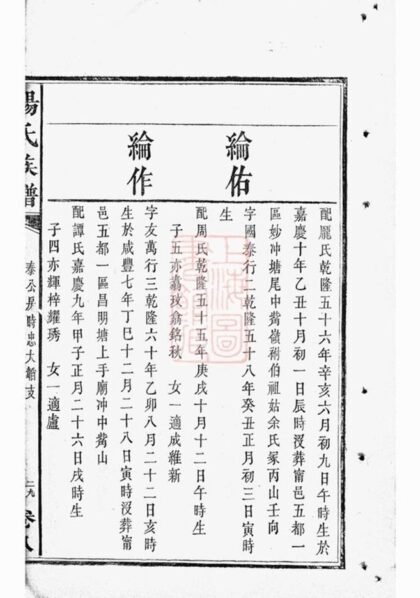 配龎氏乾隆五十六年辛亥六月初九日午時生於
嘉慶十年乙丑十月初一日辰時沒葬甯邑五都一
區妙冲塘尾中觜嶺祔伯祖姑余氏冢丙山壬向
綸佑
字國泰行二乾隆五十八年癸丑正月初三日寅時
生
配周氏乾隆五十五年庚戌十月十二日午時生
子五亦嘉玟銘秋 女一適成維新
綸作
字友萬行三乾隆六十年乙卯八月二十二日亥時
生於咸豐七年丁巳十二月二十八日寅時沒葬甯
邑五都一區昌明塘上手廟冲中觜山
配譚氏嘉慶九年甲子正月二十六日戌時生
子四亦輝梓耀琇 女一適盧
氏族譜
泰公房時忠大支
卷八
上海圖